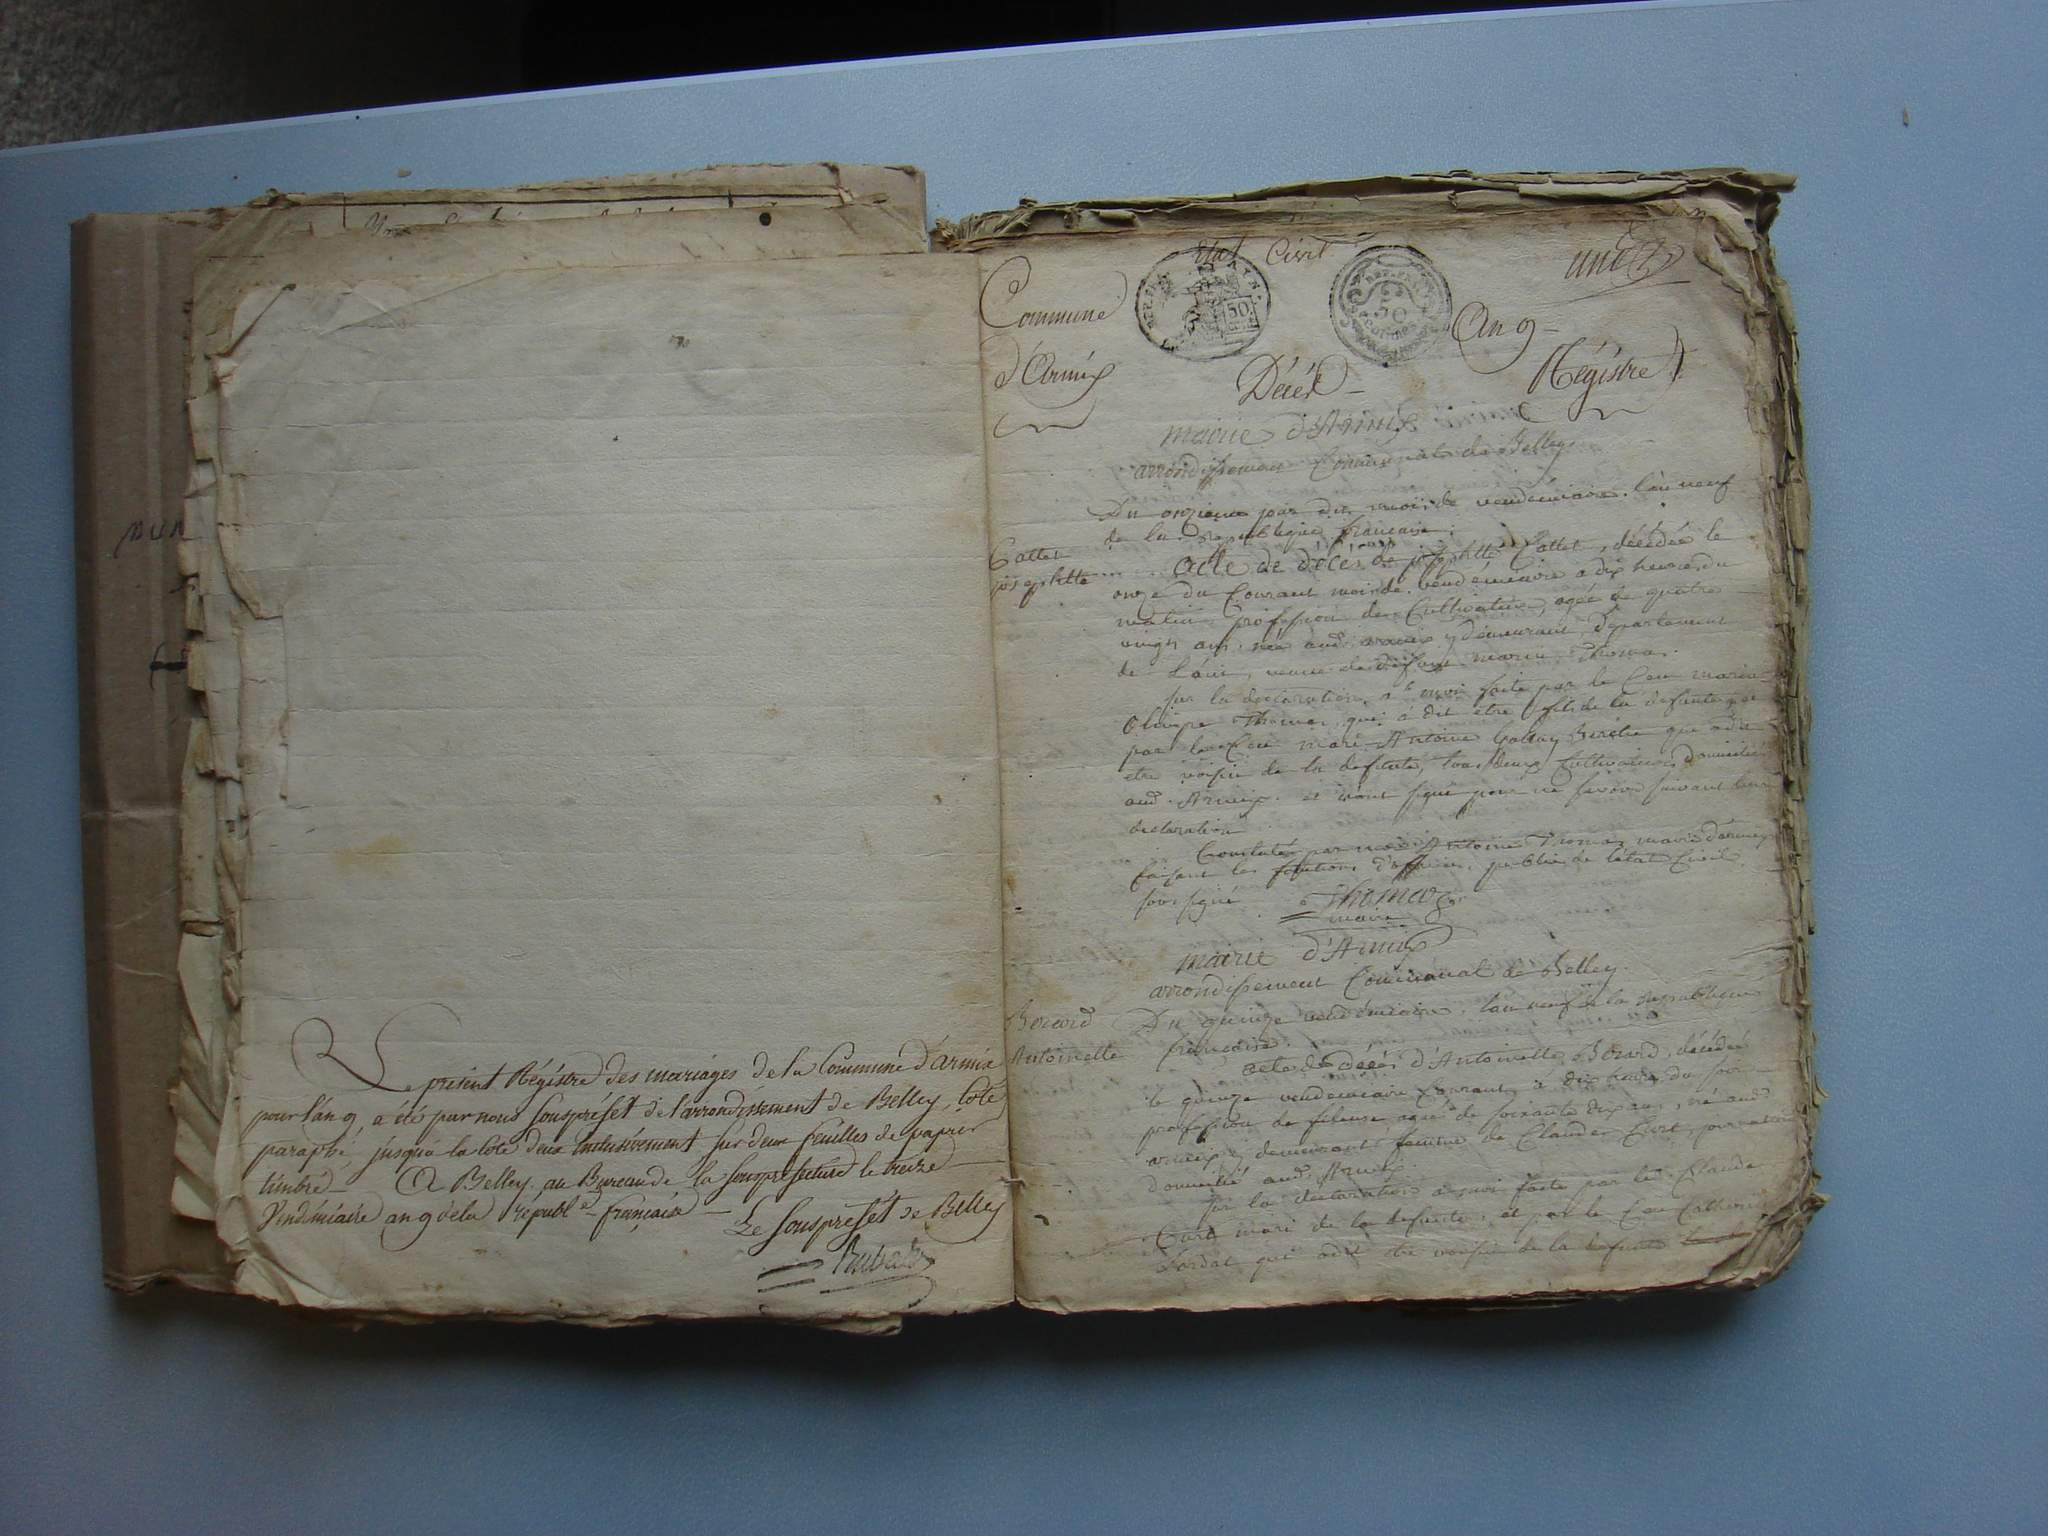 Le présent Régistre des mariages de la Commune d'Armix
pour l'an 9, a été par nous souspréfet de l'arrondissement de Belley, coté
paraphé, jusqu'a la cote deux inclusivement sur deux feuilles de papier
timbré — A Belley au Bureau de la souspréfecture le treize
Vendémiaire an 9 de la républ.e française —
Le souspréfet de Belley
Etat Civil
une
Commune
d'Armix
50
50
An 9 —
Décès —
Régistre
mairie d'Armix
arrondissement Communal de Belley
Du onzieme jour du mois de vendémiaire l'an neuf
de la republique française.
Cattet
josephtte
acte de décés de josephtte Cattet, décédée le
onze du Courant mois de vendémiaire a dix heures du
matin, profession de Cultivateur, agée de quatre
vingt ans, née aud. armix y demeurant, departement
de L'ain, veuve de defunt marin Thomas.
sur la declaration a moi faite par le Cen marin
Thomas, qui à dit etre fils de la defunte, et
par le Cen Antoine que a dit
etre voisin de la defunte, tous deux Cultivateurs domiciliés
aud. Armix. et n'ont signé pour ne savoir suivant leur
declaration
Constaté par moi Antoine Thomas maire d'armix
faisant les fonctions d'officier public de l'état Civil
sous signé Thomas
maire
mairie d'Armix
arrondissement Communal de Belley.
Borard
Antoinette
Du quinze vendémiaire, l'an neuf de la republique
française.
acte de décés d'Antoinette Borard, décédée
le quinze vendemiaire Courant, à dix heures du soir
profession de fileuse, agée de soixante dix ans, née aud
armix y demeurant, femme de Claude Curt,
domicilié aud. Armix.
sur la déclaration a moi faite par led. Claude
Curt mari de la defunte, et par le Cen Catherin
qui a dit etre voisin de la defunte